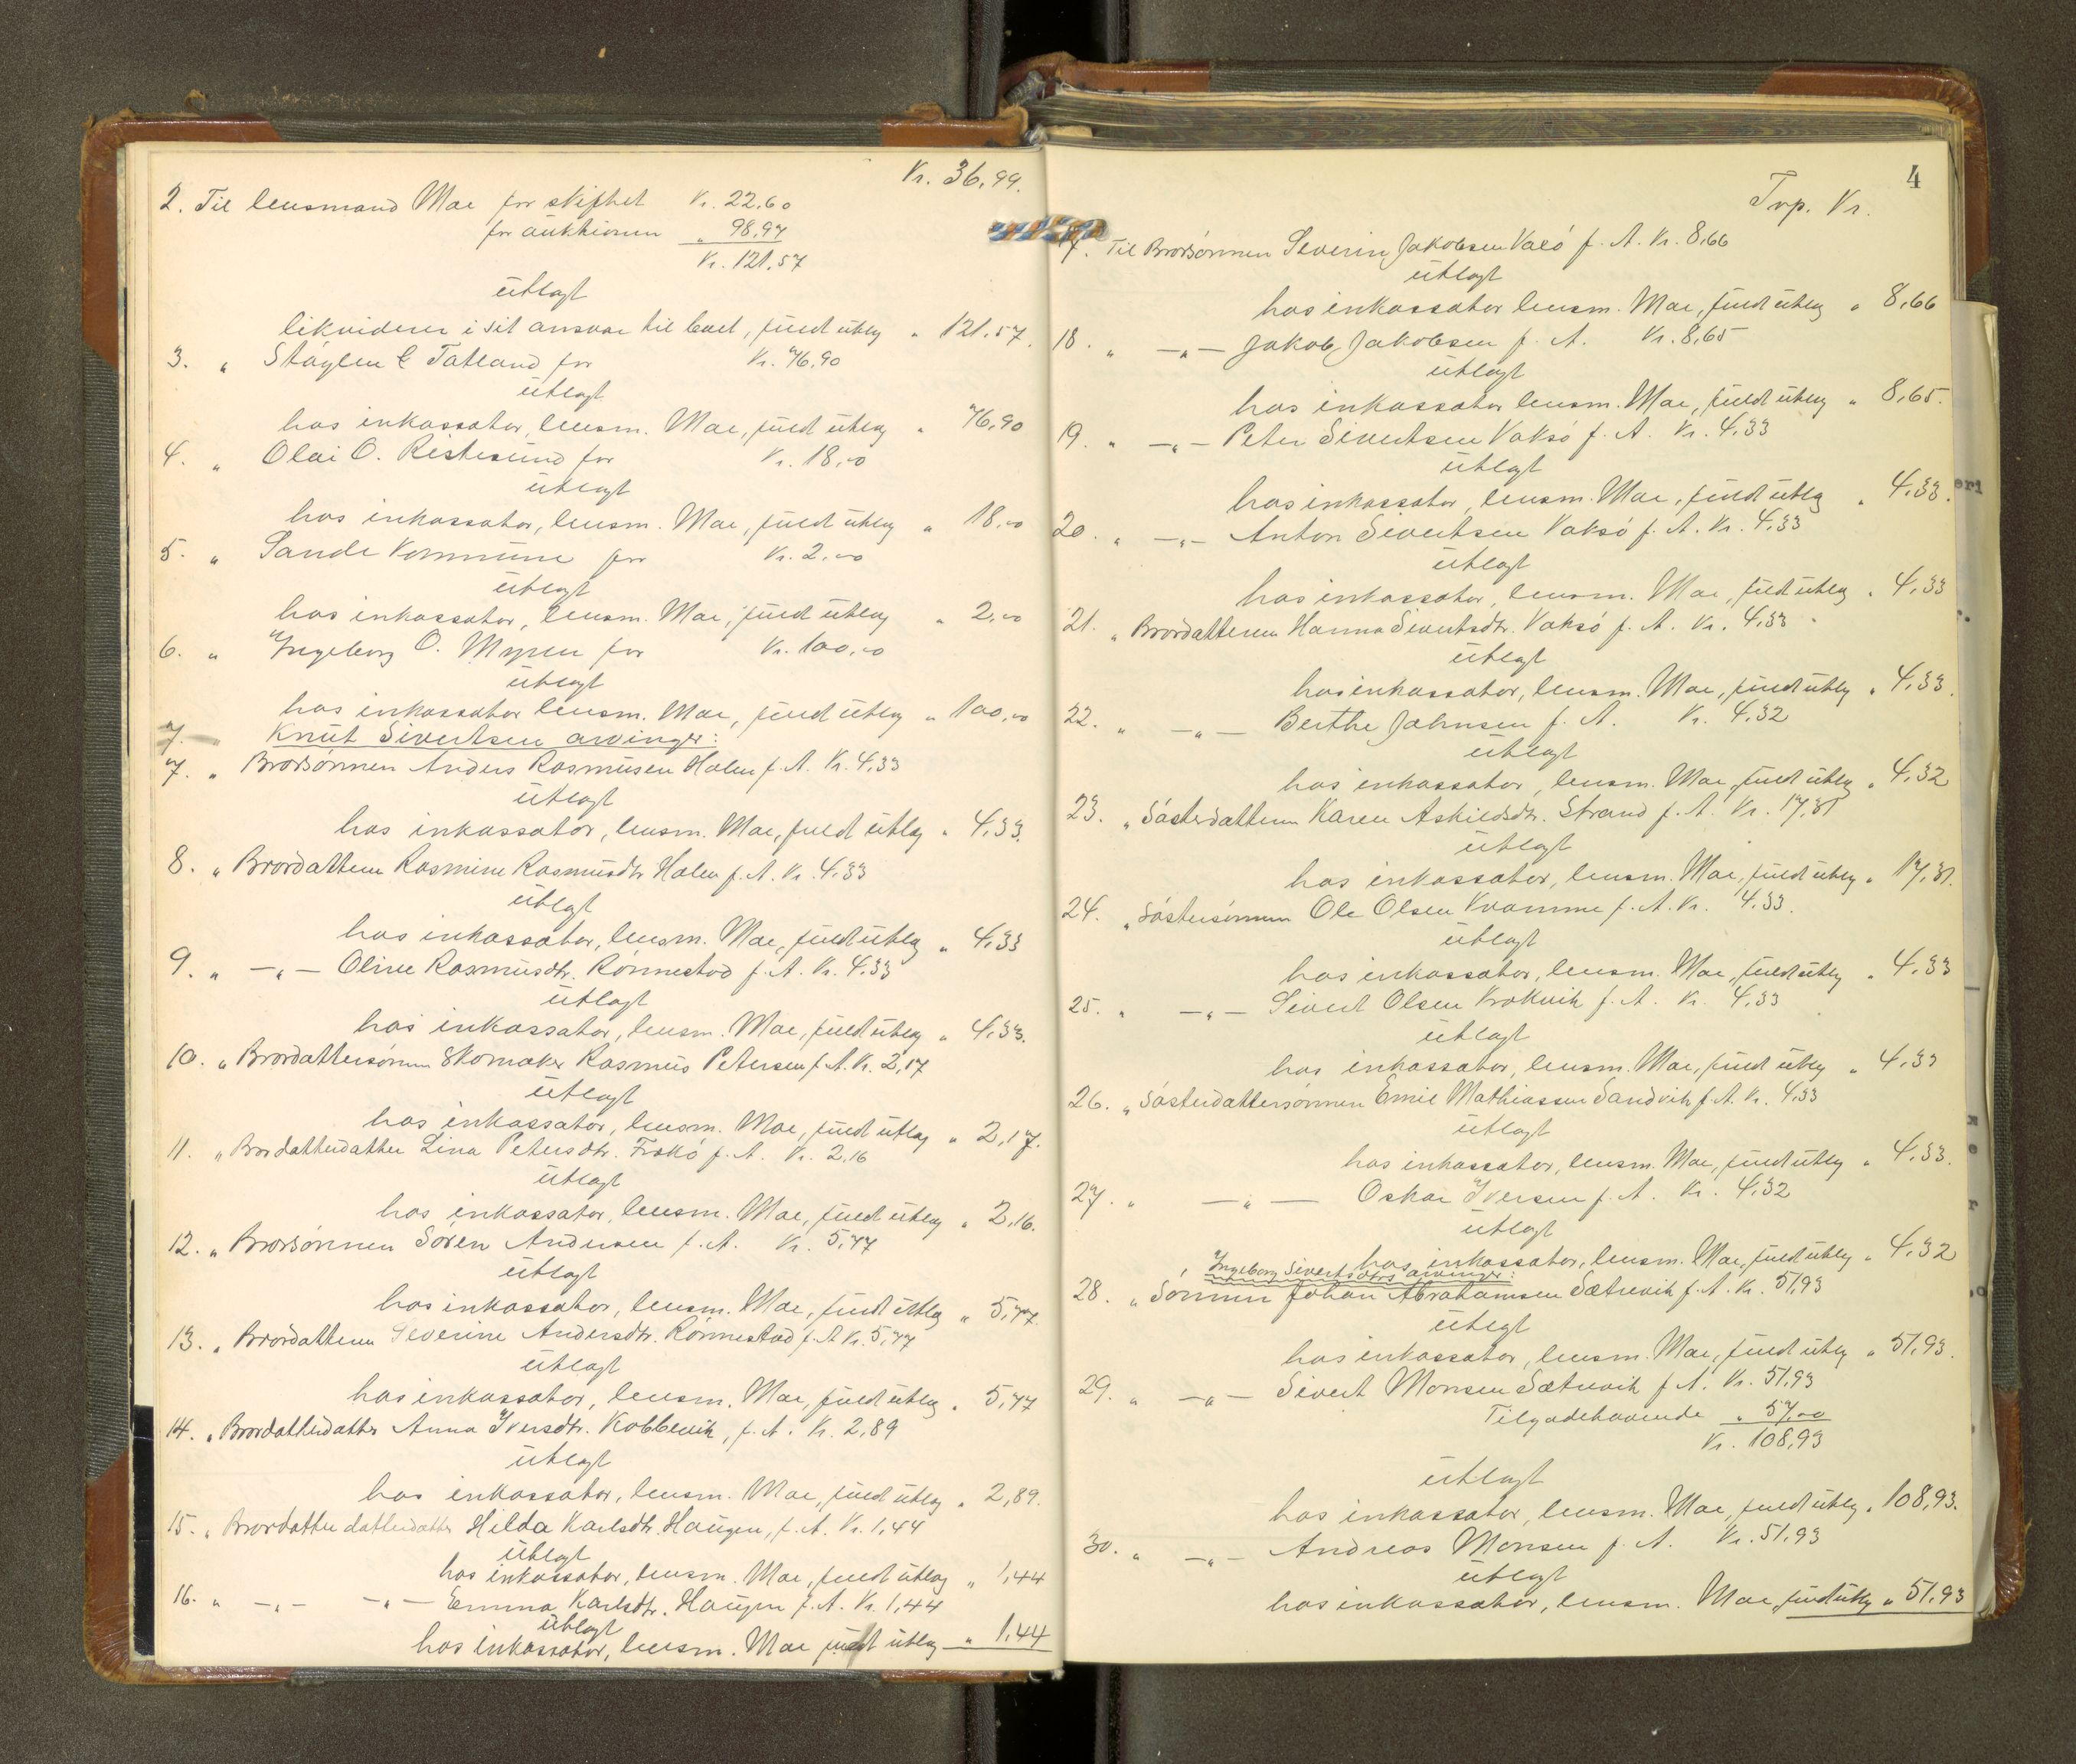 Kr. 36,99.
2. Til lensmand Mae for skiftet Kr. 22,60
for auktionen " 98,97
Kr. 121,57
utlagt
likviderer i sit ansvar til boet, fuld utlæg " 121,57.
3. " Støylen & Tatland for Kr. 76,90
utlagt
hos inkassator, lensm. Mae, fuld utlæg " 76,90
4. " Olai O. Ristesund for Kr. 18,00
utlagt
hos inkassator, lensm. Mae, fuld utlæg " 18,00
5. " Sande kommune for Kr. 2,00
utlagt
hos inkassator, lensm. Mae, fuld utlæg " 2,00
6. " Ingeborg O. Myren for Kr. 100,00
utlagt
hos inkassator lensm. Mae, fuld utlæg " 100,00
7. " Knut Sivertsen arvinger:
7. " Brorsønnen Anders Rasmusen Holen f. A. Kr. 4,33
utlagt
hos inkassator, lensm. Mae, fuld utlæg " 4,33.
8. " Brordatteren Rasmine Rasmusdtr. Holen f. A. Kr. 4,33
utlagt
hos inkassator, lensm. Mae, fuld utlæg " 4,33
9. " —"— Oline Rasmusdtr. Rønnestad f. A. Kr. 4,33
utlagt
hos inkassator, lensm. Mae, fuld utlæg " 4,33.
10. " Brordattersønnen Skomaker Rasmus Petersen f. A. Kr. 2,17
utlagt
hos inkassator, lensm. Mae, fuld utlæg " 2,17.
11. " Brordatterdatter Lina Petersdtr. Frøkó f. A. Kr. 2,16
utlagt
hos inkassator, lensm. Mae, fuld utlæg " 2,16.
12. " Brorsønnen Søren Andersen f. A. Kr. 5,77
utlagt
hos inkassator, lensm. Mae, fuld utlæg " 5,77.
13. " Brordatteren Severine Andersdtr. Rønnestad f. A Kr. 5,77
utlagt
hos inkassator, lensm. Mae, fuld utlæg " 5,77
14. " Brordatterdatter Anna Iversdtr. Kobbevik, f. A. Kr. 2,89
utlagt
hos inkassator, lensm. Mae, fuld utlæg " 2,89.
15. " Brordatterdatterdatter Hilda Karlsdtr. Haugen, f. A. Kr. 1,44
utlagt
hos inkassator, lensm. Mae, fuld utlæg " 1,44
16. " —"— —"— Emma Karlsdtr. Haugen f. A. Kr. 1,44
utlagt
hos inkassator, lensm. Mae fuldt utlæg " 1,44
4
Trp. Kr.
17. Til Brorsønnen Severin Jakobsen Való f. A. Kr. 8,66
utlagt
hos inkassator lensm. Mae, fuld utlæg " 8,66
18. " —"— Jakob Jakobsen f. A. Kr. 8,65
utlagt
hos inkassator lensm. Mae, fuld utlæg " 8,65.
19. " —"— Peter Sivertsen Voksó f. A. Kr. 4,33
utlagt
hos inkassator, lensm. Mae, fuld utlæg " 4,33.
20. " —"— Anton Sivertsen Voksó f. A. Kr. 4,33
utlagt
hos inkassator, lensm. Mae, fuld utlæg " 4,33
21. " Brordatteren Hanna Sivertsdtr. Voksó f. A. Kr. 4,33
utlagt
hos inkassator, lensm. Mae, fuld utlæg " 4,33.
22. " —"— Berthe Johnsen f. A. Kr. 4,32
utlagt
hos inkassator, lensm. Mae, fuld utlæg " 4,32
23. " Søsterdatteren Karen Askildsdtr. Strand f. A. Kr. 17,31
utlagt
hos inkassator, lensm. Mae, fuld utlæg " 17,31.
24. " Søstersønnen Ole Olsen Kvamme f. A. Kr. 4,33.
utlagt
hos inkassator, lensm. Mae, fuld utlæg " 4,33
25. " —"— Sivert Olsen Krokvik f. A. Kr. 4,33
utlagt
hos inkassator, lensm. Mae, fuld utlæg " 4,33
26. " Søsterdattersønnen Emil Mathiassen Sandvik f. A. Kr. 4,33
utlagt
hos inkassator, lensm. Mae, fuld utlæg " 4,33.
27. " —"— Oskar Iversen f. A. Kr. 4,32
utlagt
hos inkassator, lensm. Mae, fuld utlæg " 4,32
Ingeborg Sivertsdtrs arvinger:
28. " Sønnen Johan Abrahamsen Sætrevik f. A. Kr. 51,93
utlegt
hos inkassator, lensm. Mae, fuld utlæg " 51,93.
29. " —"— Sivert Monsen Sætrevik f. A. Kr. 51,93
Tilgodehavende " 57,00
Kr. 108,93
utlagt
hos inkassator, lensm. Mae, fuld utlæg " 108,93.
30. " —"— Andreas Monsen f. A. Kr. 51,93
utlagt
hos inkassator, lensm. Mae, fuld utlæg " 51,93